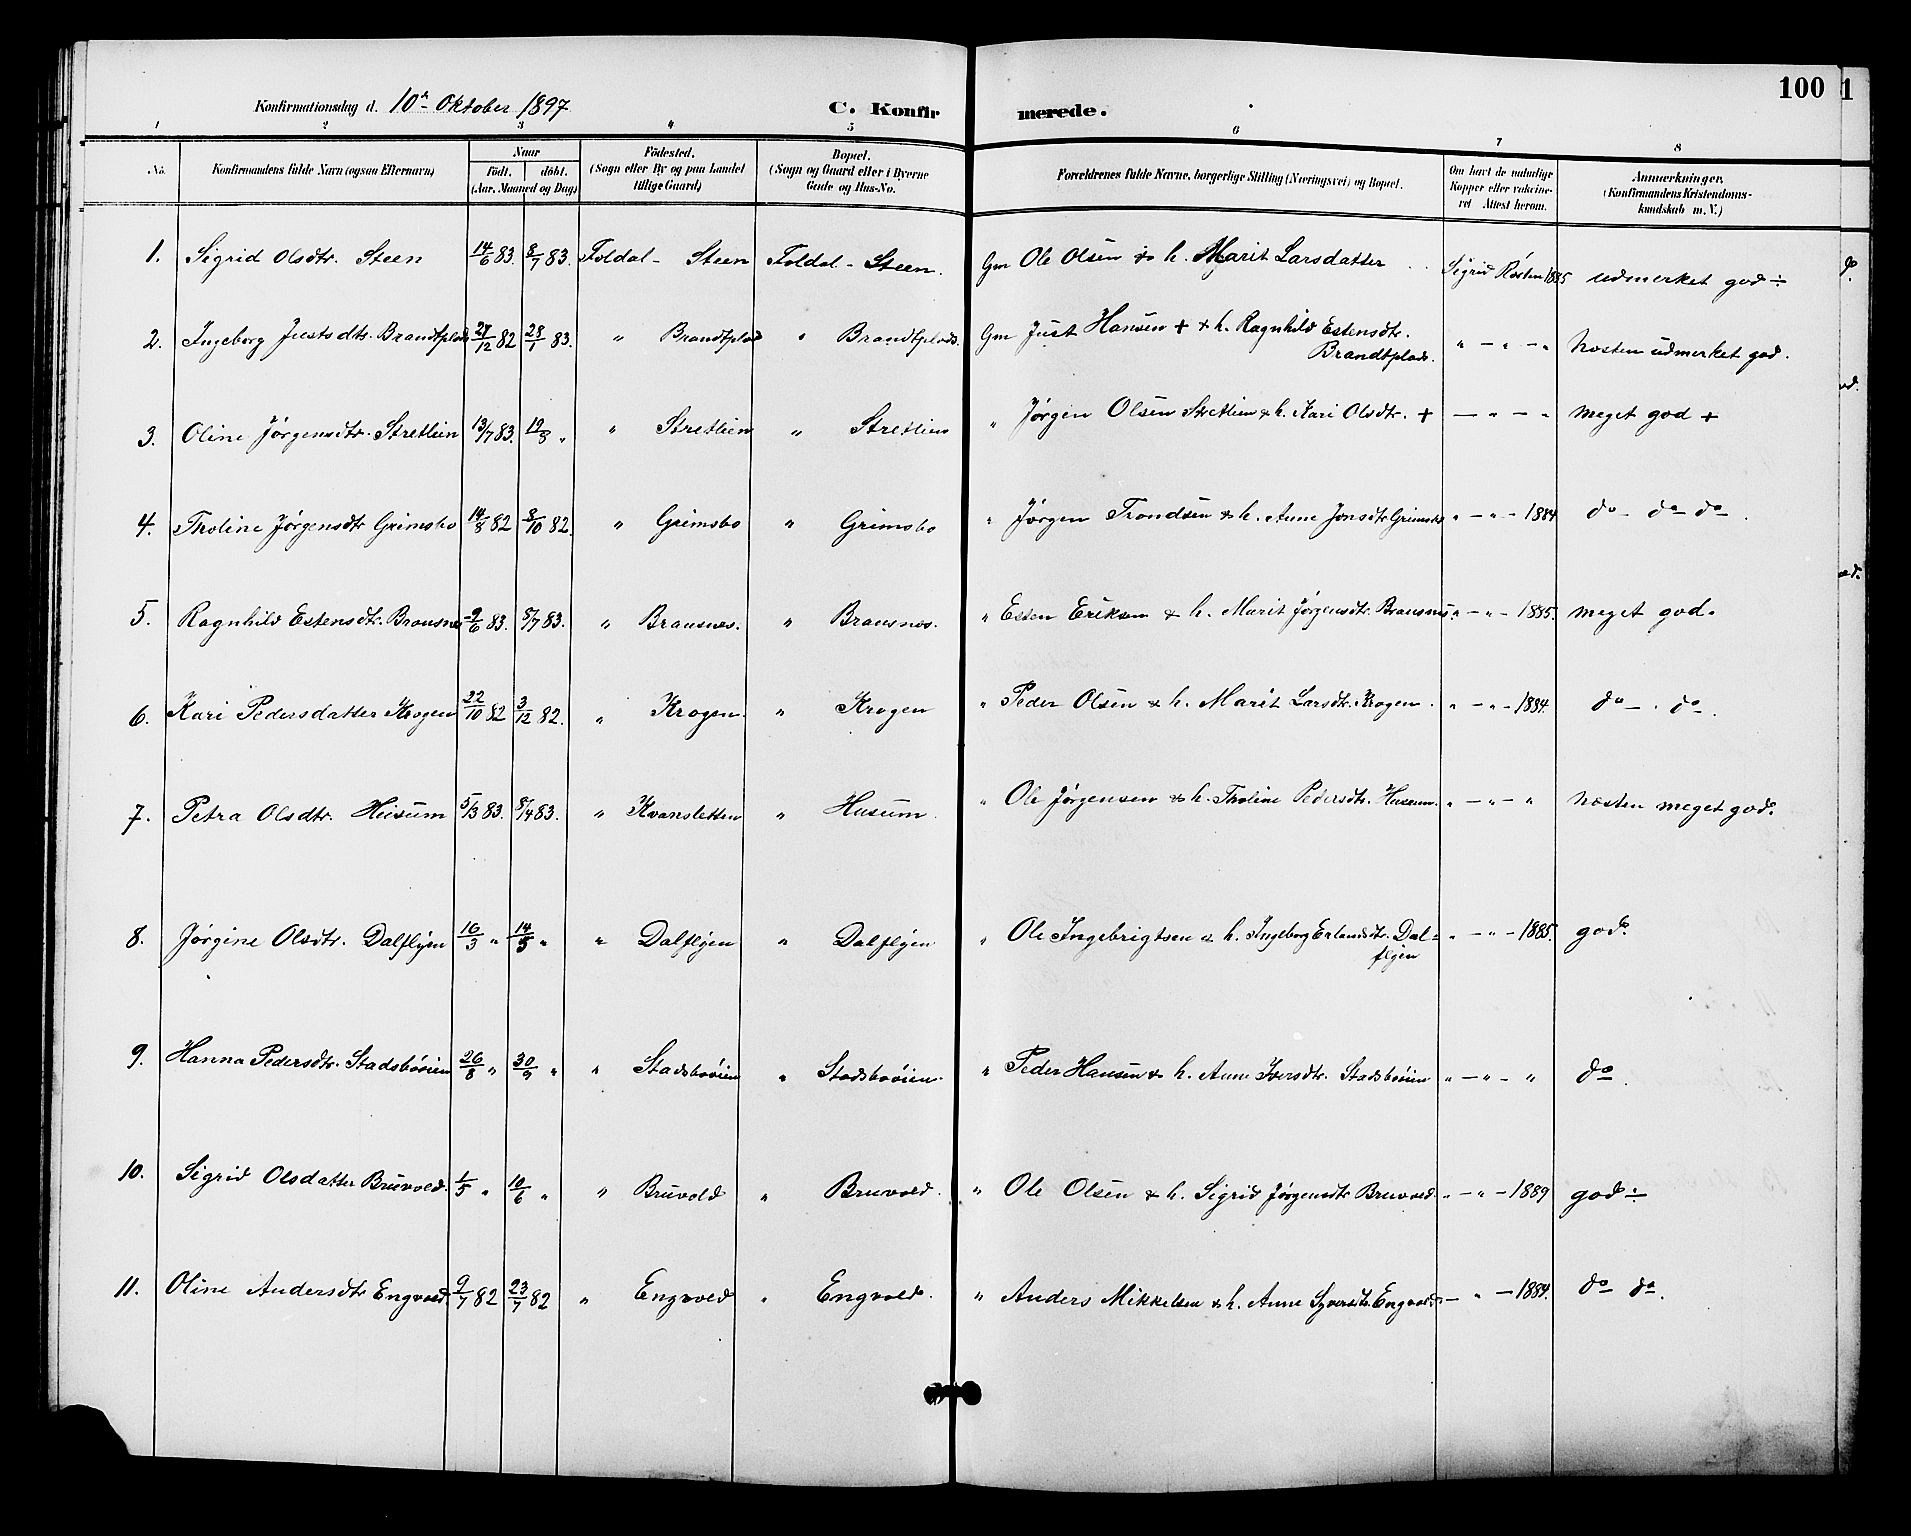 100
1
Konfirmationsdag d. 10de Oktober 1897
C. Konfir merede.
1 2 3 4 5 6 7 8
No. Konfirmandens fulde Navn (ogsaa Efternavn) Naar födt. döbt. (Aar, Maaned og Dag) Födested. (Sogn eller By og paa Landet tillige Gaard) Bopæl. (Sogn og Gaard eller i Byerne Gade og Hus-No. Forældrenes fulde Navne, borgerlige Stilling (Næringsvei) og Bopæl. Om havt de naturlige Kopper eller vaccineret Attest herom. Anmærkninger. (Konfirmandens Kristendomskundskab m. V.)
1. Sigrid Olsdtr. Steen 14/6 83. 8/7 83. Foldal - Steen Foldal - Steen. Gm Ole Olsen & h. Marit Larsdatter Sigrid Røsten 1885 udmerket god ÷
2. Ingeborg Justsdtr. Brandtplads 27/12 82 28/1 83. " Brandtplads " Brandtplads. Gm Just Hansen + & h. Ragnhild Estensdtr. Brandtplads. " - " - " næsten udmerket god.
3. Oline Jørgensdtr. Stretlien 13/7 83. 19/8 " " Stretlien " Stretlien " Jørgen Olsen Stretlien & h. Kari Olsdtr. + - " - " meget god +
4. Tholine Jørgensdtr Grimsbo 14/8 82 8/10 82. " Grimsbo " Grimsbo " Jørgen Trondsen & h. Anne Jonsdtr Grimsbo " - " - 1884 do - do do
5. Ragnhild Estensdtr. Brausnes 9/6 83. 8/7 83. " Brausnes. " Brausnes. " Esten Eriksen & h. Marit Jørgensdtr. Brausnes. " - " - 1885. meget god.
6. Kari Pedersdatter Krogen 22/10 82 3/12 82. " Krogen. " Krogen " Peder Olsen & h. Marit Larsdtr. Krogen. " - " - 1884. do - . do.
7. Petra Olsdtr. Husum 5/3 83. 8/4 83. " Kvansletten " Husum. " Ole Jørgensen & h. Tholine Pedersdtr. Husum. " - " - " næsten meget god.
8. Jørgine Olsdtr. Dalflyen 16/3 " 14/5 " " Dalflyen " Dalflyen " Ole Ingebrigtsen & h. Ingeborg Erlandsdtr. Dalflyen " - " - 1885. god.
9. Hanna Pedersdtr. Stadsbøien 26/8 " 30/9 " " Stadsbøien " Stadsbøien. " Peder Hansen & h. Anne Iversdtr. Stadsbøien " - " - " do.
10. Sigrid Olsdatter Bruvold. 1/5 " 10/6 " " Bruvold " Bruvold. " Ole Olsen & h. Sigrid Jørgensdtr Bruvold. " - " - 1889 god ÷
11. Oline Andersdtr Engvold. 9/7 82 23/7 82 " Engvold " Engvold. " Anders Mikkelsen & h. Anne Syversdtr. Engvold - " - 1884. do do.